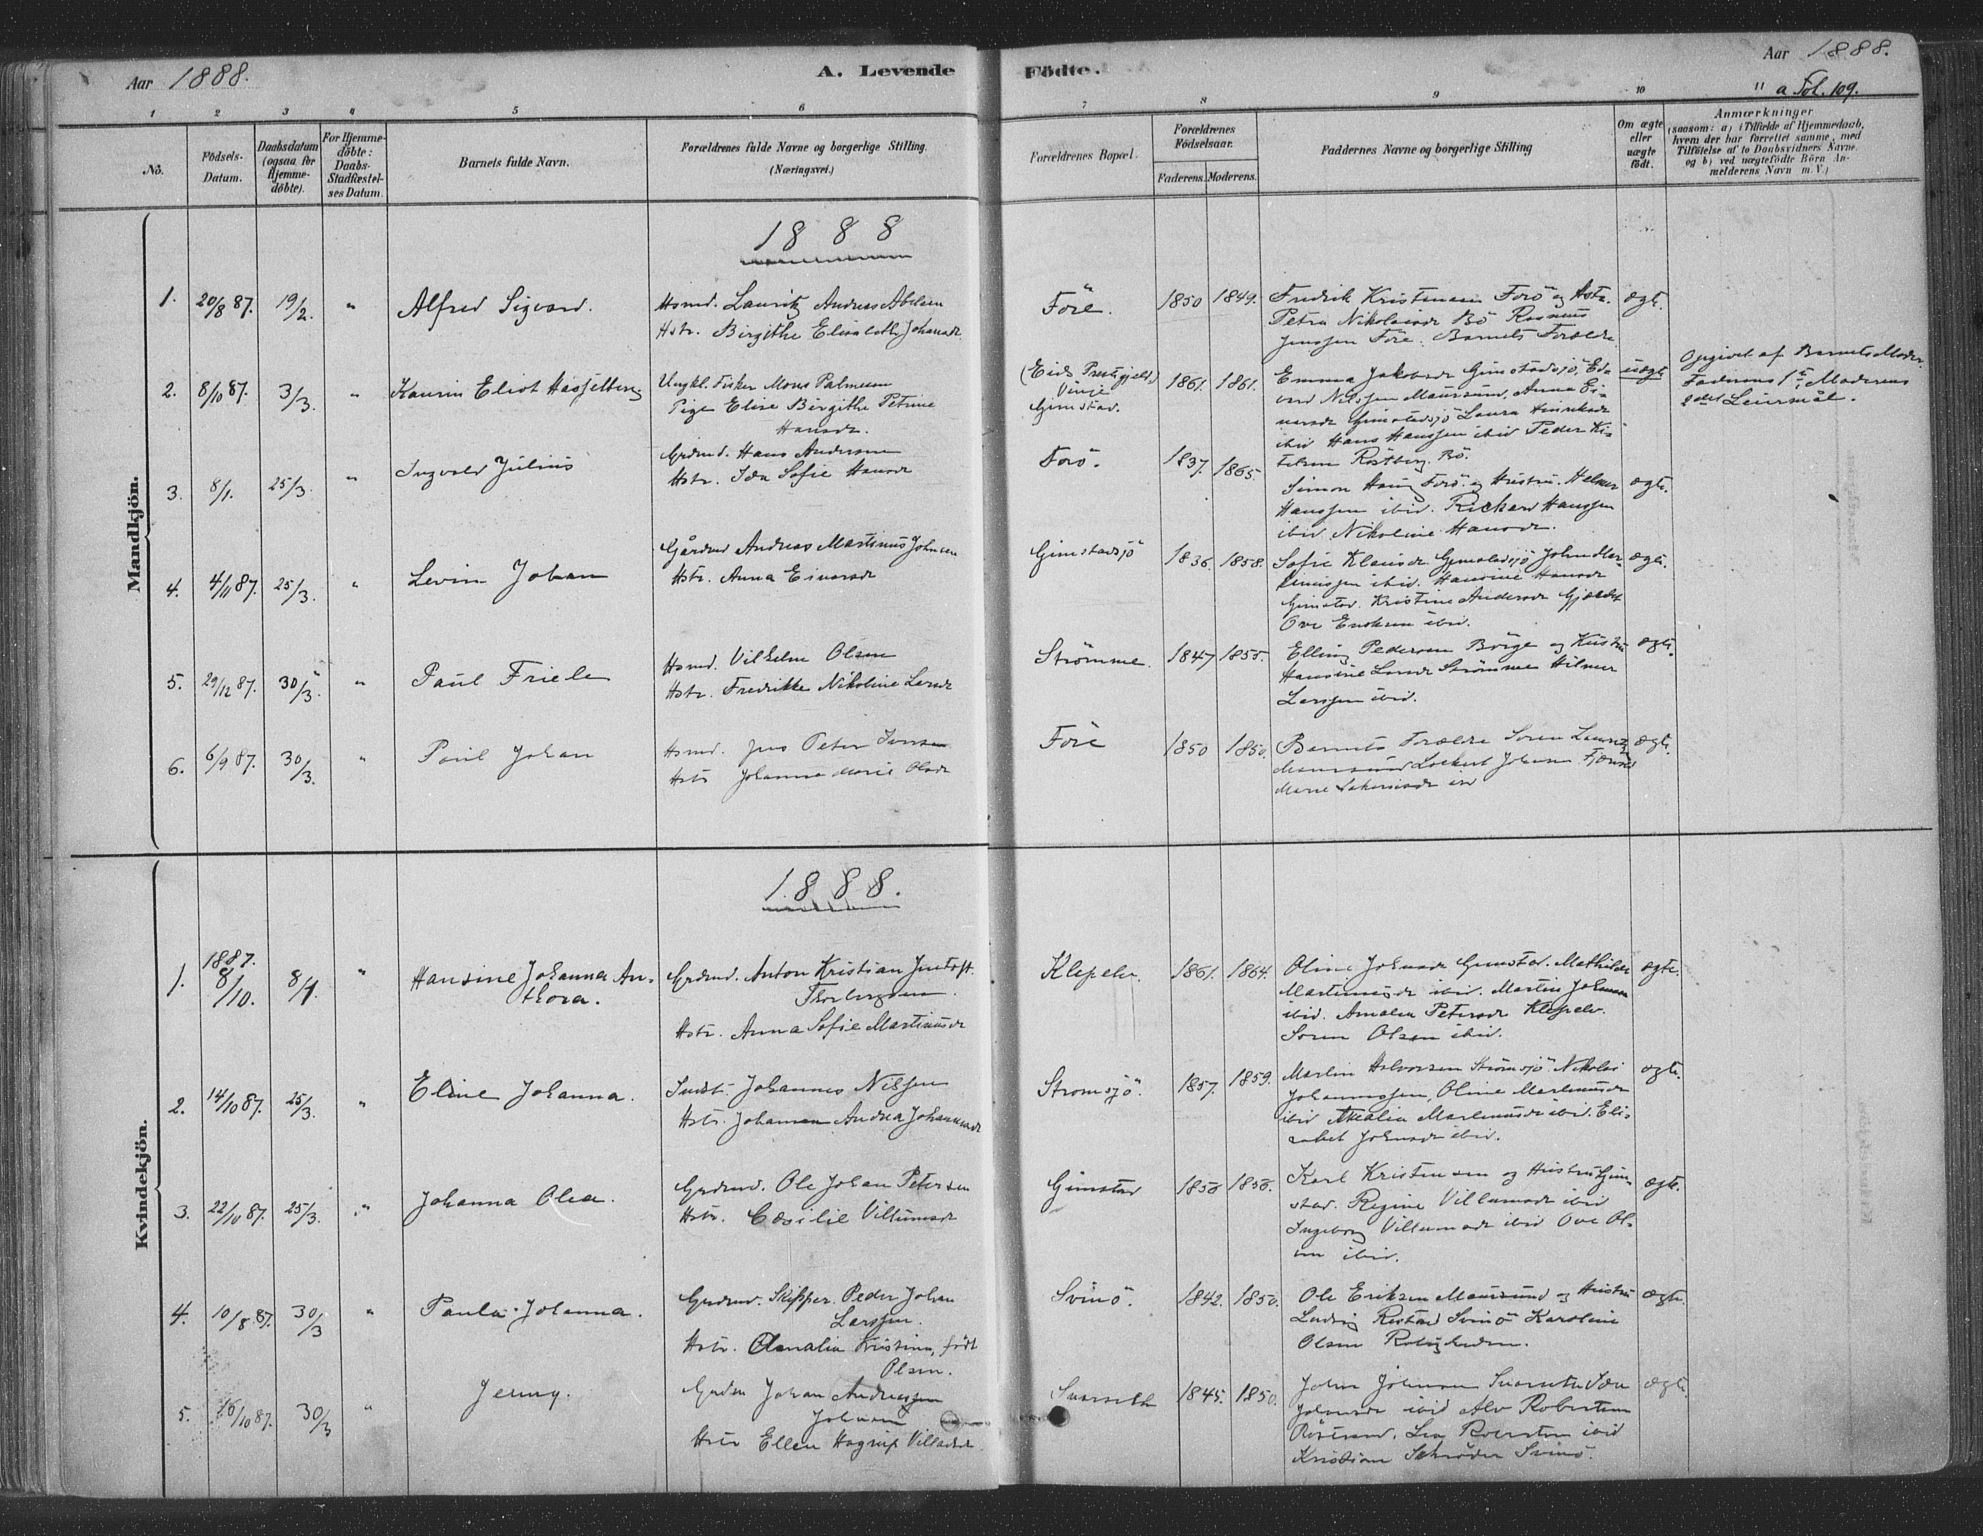 Aar 1888.
A. Levende
1 2 3 4 5 6
No.
Födsels-
Datum.
Daabsdatum
(ogsaa for
Hjemme-
döbte).
For Hjemme-
döbte:
Daabs-
Stadfæstel-
ses Datum.
Barnets fulde Navn.
Forældrenes fulde Navne og borgerlige Stilling.
(Næringsvei.)
Mandkjön.
1888
1. 20/8 87. 19/2. " Alfred Sigvard. Hsmd. Lauritz Andreas Abelsen
Hstr. Birgithe Elisabeth Johansdr
2. 8/10 87. 3/3. " Kaurin Eliot Hasselberg Ungkl. Fisker Mons Palmesen
Pige Elise Birgithe Petrine
Hansdr.
3. 8/1. 25/3. " Ingvald Julius Grdmd. Hans Andersen
Hstr. Ida Sofie Hansdr
4. 4/11 87. 25/3. " Levin Johan Gårdmd Andreas Martinus Johnsen
Hstr. Anna Einarsdr
5. 29/12 87. 30/3. " Paul Friele Hsmd. Vilhelm Olsen
Hstr. Fredrikke Nikoline Larsdr
6. 6/9 87. 30/3. " Paul Johan Hsmd. Jens Peter Jensen
Hstr Johanna Marie Olsdr
Kvindekjön.
1888.
1. 1887. 8/10. 8/1 " Hansine Johanna An-
thora. Grdmd. Anton Kristian Jentoft
Thorbergsen.
Hstr. Anna Sofie Martinusdr
2. 14/10 87. 25/3. " Eline Johanna. Indst. Johannes Nilsen
Hstr. Johanna Andrea Johannesdr
3. 22/10 87. 25/3. " Johanna Olea. Grdmd. Ole Johan Petersen
Hstr. Cæsilie Villumsdr
4. 10/8 87. 30/3 " Paula Johanna. Grdmd. Skipper Peder Johan
Larssen.
Hstr. Amalia Kristina, född
Olsen.
5. 16/10 87. 30/3 " Jenny. Grdm Johan Andreassen
Johnsen
Hstr Ellen Hagrup Villadsdr.
Aar 1888.
Födte.
a Fol. 109.
7 8 9 10 11
Forældrenes Bopæl.
Forældrenes
Födselsaar.
Faderens. Moderens.
Faddernes Navne og borgerlige Stilling
Om ægte
eller
uægte
födt.
Anmærkninger
(saasom: a) i Tilfælde af Hjemmedaab,
hvem der har forrettet samme, med
Tilföielse af to Daabsvidners Navne.
og b) ved uægtefödte Börn An-
melderens Navn m. V.)
Före. 1850 1849. Fredrik Kristensen Forö og Hstr. ægte.
Petra Nikolaisdr Bö Rasmus
Jenssen Före. Barnets Forældre
(Eids Prestegjeld)
Vinje
Gimstad. 1861. 1861. Emma Jakobsdr Gimstadsjö, Ed-
vard Nilssen Maursund, Anna Ei-
narsdr Gimstadsjö Laura Hinriksdr
ibid Hans Hanssen ibid Peder Kri-
Bö. uægte Opgivet af Barnets Moder.
Faderens 1ste, Moderens
2det Leiermål.
Forö. 1837. 1865. Simon Hansen Forö og Hustru. Helmer ægte.
Hanssen ibid. Rickard Hanssen
ibid Nikoline Hansdr.
Gimstadsjö 1836. 1858. Sofie Klausdr Gimstadsjö John Mar- ægte.
tinussen ibid. Hansine Hansdr
Gimstad. Kristine Andersdr
Ove Eriksen ibid.
Strömme. 1847 1855. Elling Pedersen Börge og Hustru ægte.
Hansine Larsdr Strömme Hilmer
Larssen ibid.
Före 1850 1850. Barnets Forældre Soren Lauritz ægte.
Maursund Lockert Johansen
Marie Zakariasdr ibid
Klepelv. 1861. 1864. Oline Johnsdr Gimstad. Mathilde ægte.
Martinusdr ibid. Martin Johnsen
ibid. Amalia Petersdr Klepelv.
Soren Olsen ibid.
Stromsjö. 1857. 1859. Martin Halvorsen Strömsjö. Nikolai ægte.
Johannessen, Oline Martinusdr
ibid Amalia Martinusdr ibid. Eli-
sabet Johnsdr ibid.
Gimstad 1858 1858. Karl Kristensen og Hustru Gim- ægte.
stad. Regine Villumsdr ibid
Ingeborg Villumsdr ibid Ove Ol-
sen ibid.
Svinö. 1842. 1850. Ole Eriksen Maursund og Hustru ægte.
Ludvig Ristad Svinö Karoline
Olsen
1845. 1850. John Johnsen ægte.
Johnsdr ibid Alv Robertsen
Lea Robertsen ibid
Kristian Schröder Svinö.